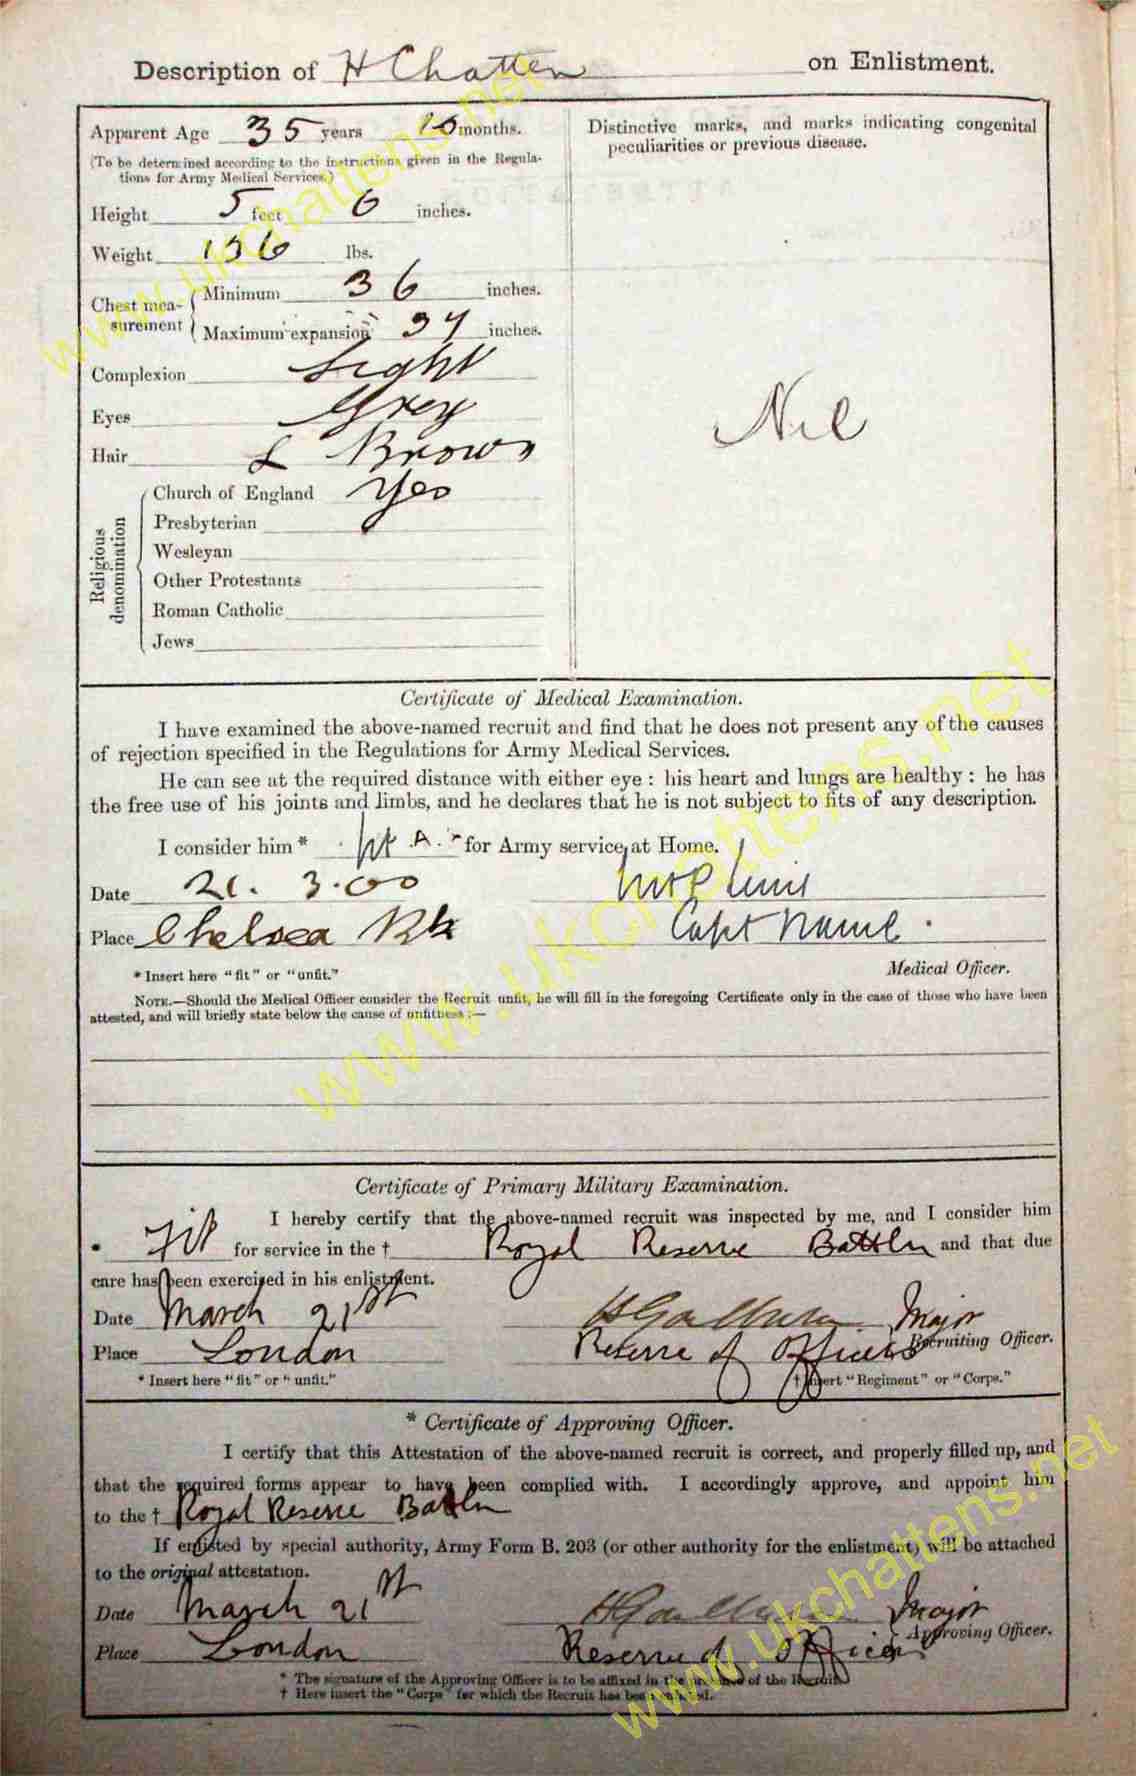 Description of H Chatten on Enlistment.
Apparent Age 35 years 10 months.
(To be determined according to the instructions given in the Regula-
tions for Army Medical Services.)
Height 5 feet 6 inches.
Weight 136 lbs.
Chest mea-
surement
Minimum 36 inches.
Maximum expansion 37 inches.
Complexion Light
Eyes Grey
Hair L Brown
Religious
denomination
Church of England Yes
Presbyterian
Wesleyan
Other Protestants
Roman Catholic
Jews
Distinctive marks, and marks indicating congenital
peculiarities or previous disease.
Nil
Certificate of Medical Examination.
I have examined the above-named recruit and find that he does not present any of the causes
of rejection specified in the Regulations for Army Medical Services.
He can see at the required distance with either eye : his heart and lungs are healthy : he has
the free use of his joints and limbs, and he declares that he is not subject to fits of any description.
I consider him * fit for Army service at Home.
Date 21.3.00
Place Chelsea Bks Capt
* Insert here "fit" or "unfit." Medical Officer.
NOTE.—Should the Medical Officer consider the Recruit unfit, he will fill in the foregoing Certificate only in the case of those who have been
attested, and will briefly state below the cause of unfitness :—
Certificate of Primary Military Examination.
I hereby certify that the above-named recruit was inspected by me, and I consider him
* Fit for service in the † Royal Reserve Battln and that due
care has been exercised in his enlistment.
Date March 21st Major
Place London Reserve of Officers Recruiting Officer.
* Insert here "fit" or "unfit." † Insert "Regiment" or "Corps."
* Certificate of Approving Officer.
I certify that this Attestation of the above-named recruit is correct, and properly filled up, and
that the required forms appear to have been complied with. I accordingly approve, and appoint him
to the † Royal Reserve Battln
If enlisted by special authority, Army Form B. 203 (or other authority for the enlistment) will be attached
to the original attestation.
Date March 21st Major
Place London Reserve of Officers Approving Officer.
* The signature of the Approving Officer is to be affixed in the presence of the Recruit.
† Here insert the "Corps" for which the Recruit has been enlisted.
www.ukchattens.net
www.ukchattens.net
www.ukchattens.net